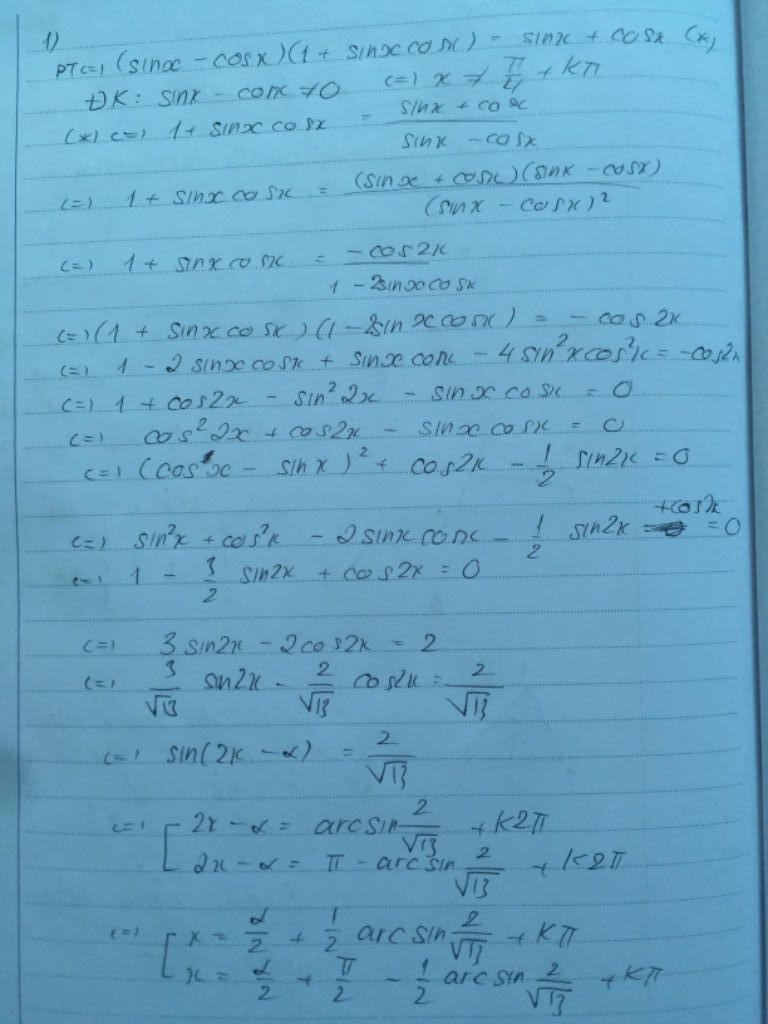 1)
PT <=> (sinx - cosx)(1 + sinx cosx) = sinx + cosx (*)
ĐK: sinx - cosx ≠ 0 <=> x ≠ π/4 + kπ
(*) <=> 1 + sinx cosx = (sinx + cosx)/(sinx - cosx)
<=> 1 + sinx cosx = (sinx + cosx)(sinx - cosx)/(sinx - cosx)²
<=> 1 + sinx cosx = -cos2x/(1 - 2sinxcosx)
<=> (1 + sinx cosx)(1 - 2sinxcosx) = -cos2x
<=> 1 - 2sinxcosx + sinx cosx - 4sin²xcos²x = -cos2x
<=> 1 + cos2x - sin²2x - sinx cosx = 0
<=> cos²2x + cos2x - sinx cosx = 0
<=> (cosx - sinx)² + cos2x - 1/2 sin2x = 0
<=> sin²x + cos²x - 2sinx cosx - 1/2 sin2x + cos2x = 0
<=> 1 - 3/2 sin2x + cos2x = 0
<=> 3sin2x - 2cos2x = 2
<=> 3/√13 sin2x - 2/√13 cos2x = 2/√13
<=> sin(2x - α) = 2/√13
<=> [ 2x - α = arcsin 2/√13 + k2π
2x - α = π - arcsin 2/√13 + k2π
<=> [ x = α/2 + 1/2 arcsin 2/√13 + kπ
x = α/2 + π/2 - 1/2 arcsin 2/√13 + kπ